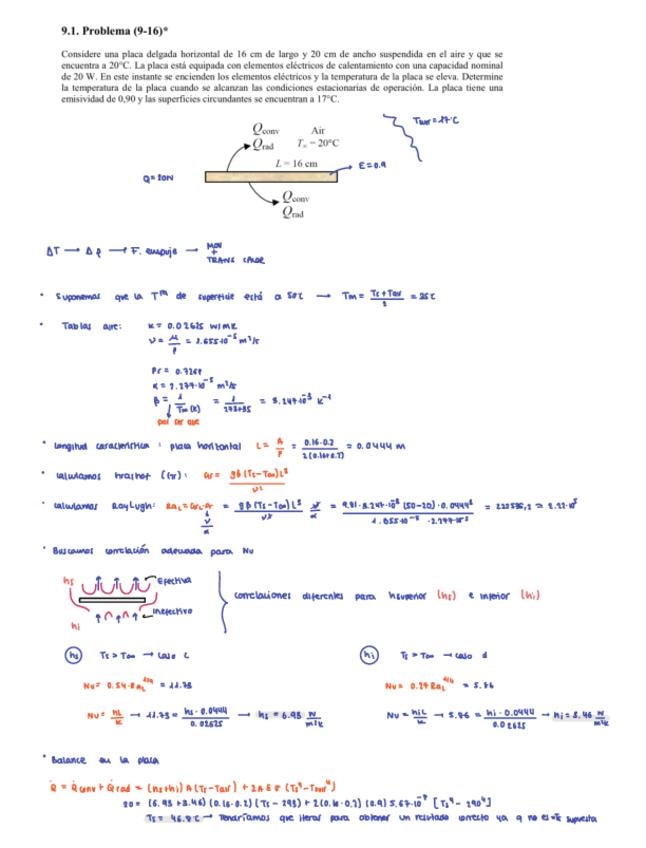 9.1. Problema (9-16)*
Considere una placa delgada horizontal de 16 cm de largo y 20 cm de ancho suspendida en el aire y que se
encuentra a 20°C. La placa está equipada con elementos eléctricos de calentamiento con una capacidad nominal
de 20 W. En este instante se encienden los elementos eléctricos y la temperatura de la placa se eleva. Determine
la temperatura de la placa cuando se alcanzan las condiciones estacionarias de operación. La placa tiene una
emisividad de 0,90 y las superficies circundantes se encuentran a 17°C.
Q̇conv Air
Q̇rad T∞ = 20°C
L = 16 cm
ε=0.9
Q= 20W
Q̇conv
Q̇rad
ΔT → Δρ → F. empuje → MOV + TRANS CALOR
• Suponemos que la Tm de superficie está a 50℃ → Tm =
• Tablas aire: K= 0.02625 W/MK
ν = μ/ρ = 1.655·10⁻⁵ m²/s
β = 1/Tm(K)
• Longitud característica : placa horizontal L = A/P = = 0.0444 m
• Calculamos (Gr): Gr = gβ(Ts-T∞)L³/ν²
• Calculamos
• Buscamos correlación adecuada para Nu
hs Efectiva
hi Inefectivo
correlaciones diferentes para hsuperior (hs) e inferior (hi)
hs Ts > T∞ → caso c
hi Ts > T∞ → caso d
Nu= 0.54·RaL^1/4 = 11.73
Nu= 0.27 RaL^1/4 = 5.86
Nu= hL/K → 11.73 = hs·0.0444/0.02625 → hs = 6.93 W/m²K
Nu= hiL/K → 5.86 = hi·0.0444/0.02625 → hi= 3.46 W/m²K
• Balance en la placa
Q̇ = Q̇conv + Q̇rad = (hs+hi) A (Ts - Tair) + 2Aεσ
20= (6.93 +3.46) (0.16·0.2) (Ts - 293) + 2(0.16·0.2) (0.9) 5.67·10⁻⁸ [Ts⁴ - 290⁴]
Ts = 46.8℃ → Tendríamos que iterar para obtener un resultado correcto ya q no es =Ts supuesta